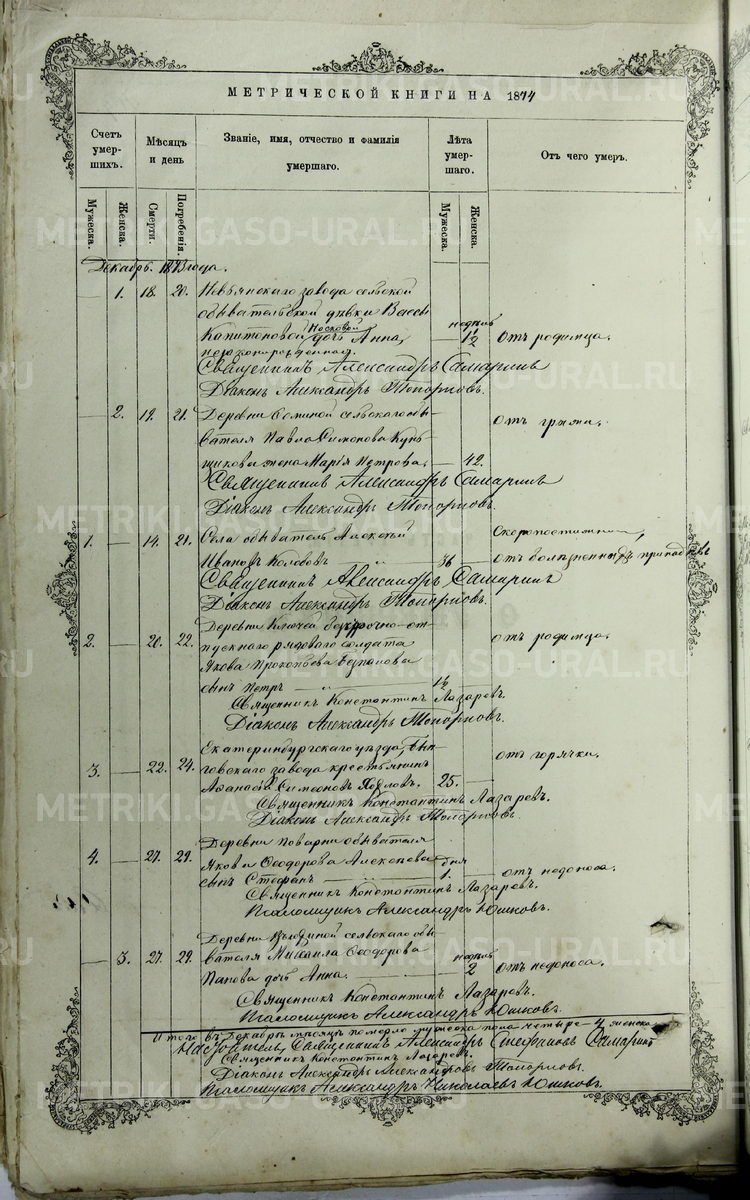 МЕТРИЧЕСКОЙ КНИГИ НА 1874
Счетъ умерших. Мѣсяцъ и день Званіе, имя, отчество и фамилія умершаго. Лѣта умершаго. Отъ чего умеръ.
Мужеска. Женска. Смерти. Погребенія. Мужеска. Женска.
Декабрь 1873 года.
1. 18. 20. Невьянскаго завода сельской
обывательской дѣвки Вассы
Капитоновой Носковой дочь Анна, недѣль 1½ отъ родимца.
незаконнорожденная.
Священникъ Александръ Самаринъ
Діаконъ Александръ Топорковъ.
2. 19. 21. Деревни сельскаго обы-
вателя Павла Симонова
жена Марія Петрова. 42. отъ грыжи.
Священникъ Александръ Самаринъ
Діаконъ Александръ Топорковъ.
1. 14. 21. Села обыватель Алексѣй Скоропостижно,
Ивановъ 36 отъ болѣзненныхъ припадковъ
Священникъ Александръ Самаринъ
Діаконъ Александръ Топорковъ.
2. 20. 22. Деревни Ключей безсрочно-от-
пускнаго рядоваго солдата отъ родимца.
Якова Прокопьева
сынъ Петръ 1½
Священникъ Константинъ Лазаревъ
Діаконъ Александръ Топорковъ.
3. 22. 24. Екатеринбургскаго уѣзда, Бын-
говскаго завода крестьянинъ отъ горячки.
Афанасій Симеоновъ 25.
Священникъ Константинъ Лазаревъ.
Діаконъ Александръ Топорковъ.
4. 27. 29. Деревни обывателя
Якова Ѳеодорова Алексѣева дня
сынъ Стефанъ 1. отъ недоноса.
Священникъ Константинъ Лазаревъ.
Псаломщикъ Александръ Юшковъ.
3. 27. 29. Деревни сельскаго обы-
вателя Михаила Ѳеодорова недѣль
Попова дочь Анна. 2 отъ недоноса.
Священникъ Константинъ Лазаревъ.
Псаломщикъ Александръ Юшковъ.
Итого въ Декабрѣ мѣсяцѣ померло мужеска пола четыре - 4 женска
Настоятель, Священникъ Александръ Стефановъ Самаринъ
Священникъ Константинъ Лазаревъ.
Діаконъ Александръ Александровъ Топорковъ.
Псаломщикъ Александръ Николаевъ Юшковъ.
METRIKI.GASO-URAL.RU